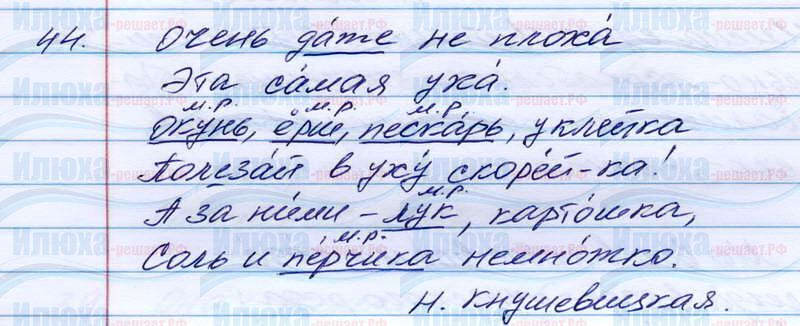 44. Очень да́же не плоха́
Эта са́мая уха́.
м.р. м.р. м.р.
Оку́нь, ёрш, песка́рь, уклейка
Полеза́й в уху́ скоре́й-ка!
м.р.
А за ни́ми – лук, карто́шка,
м.р.
Соль и пе́рчика немно́жко.
Н. Кнушевицкая.